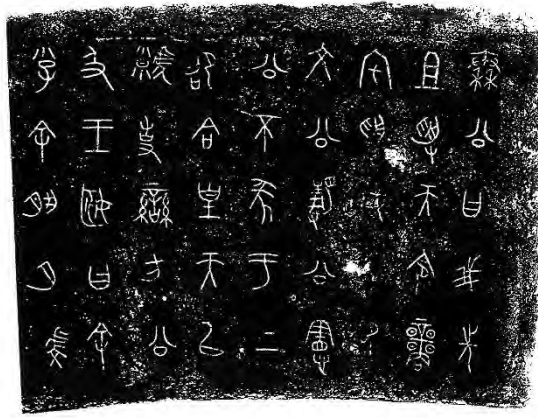 秦公曰我先
且受天令商
宅受或
文公静公憲
公不㒸于上
卲合皇天以
虩事蠻方公
及王姬曰余
小子余夙夕虔